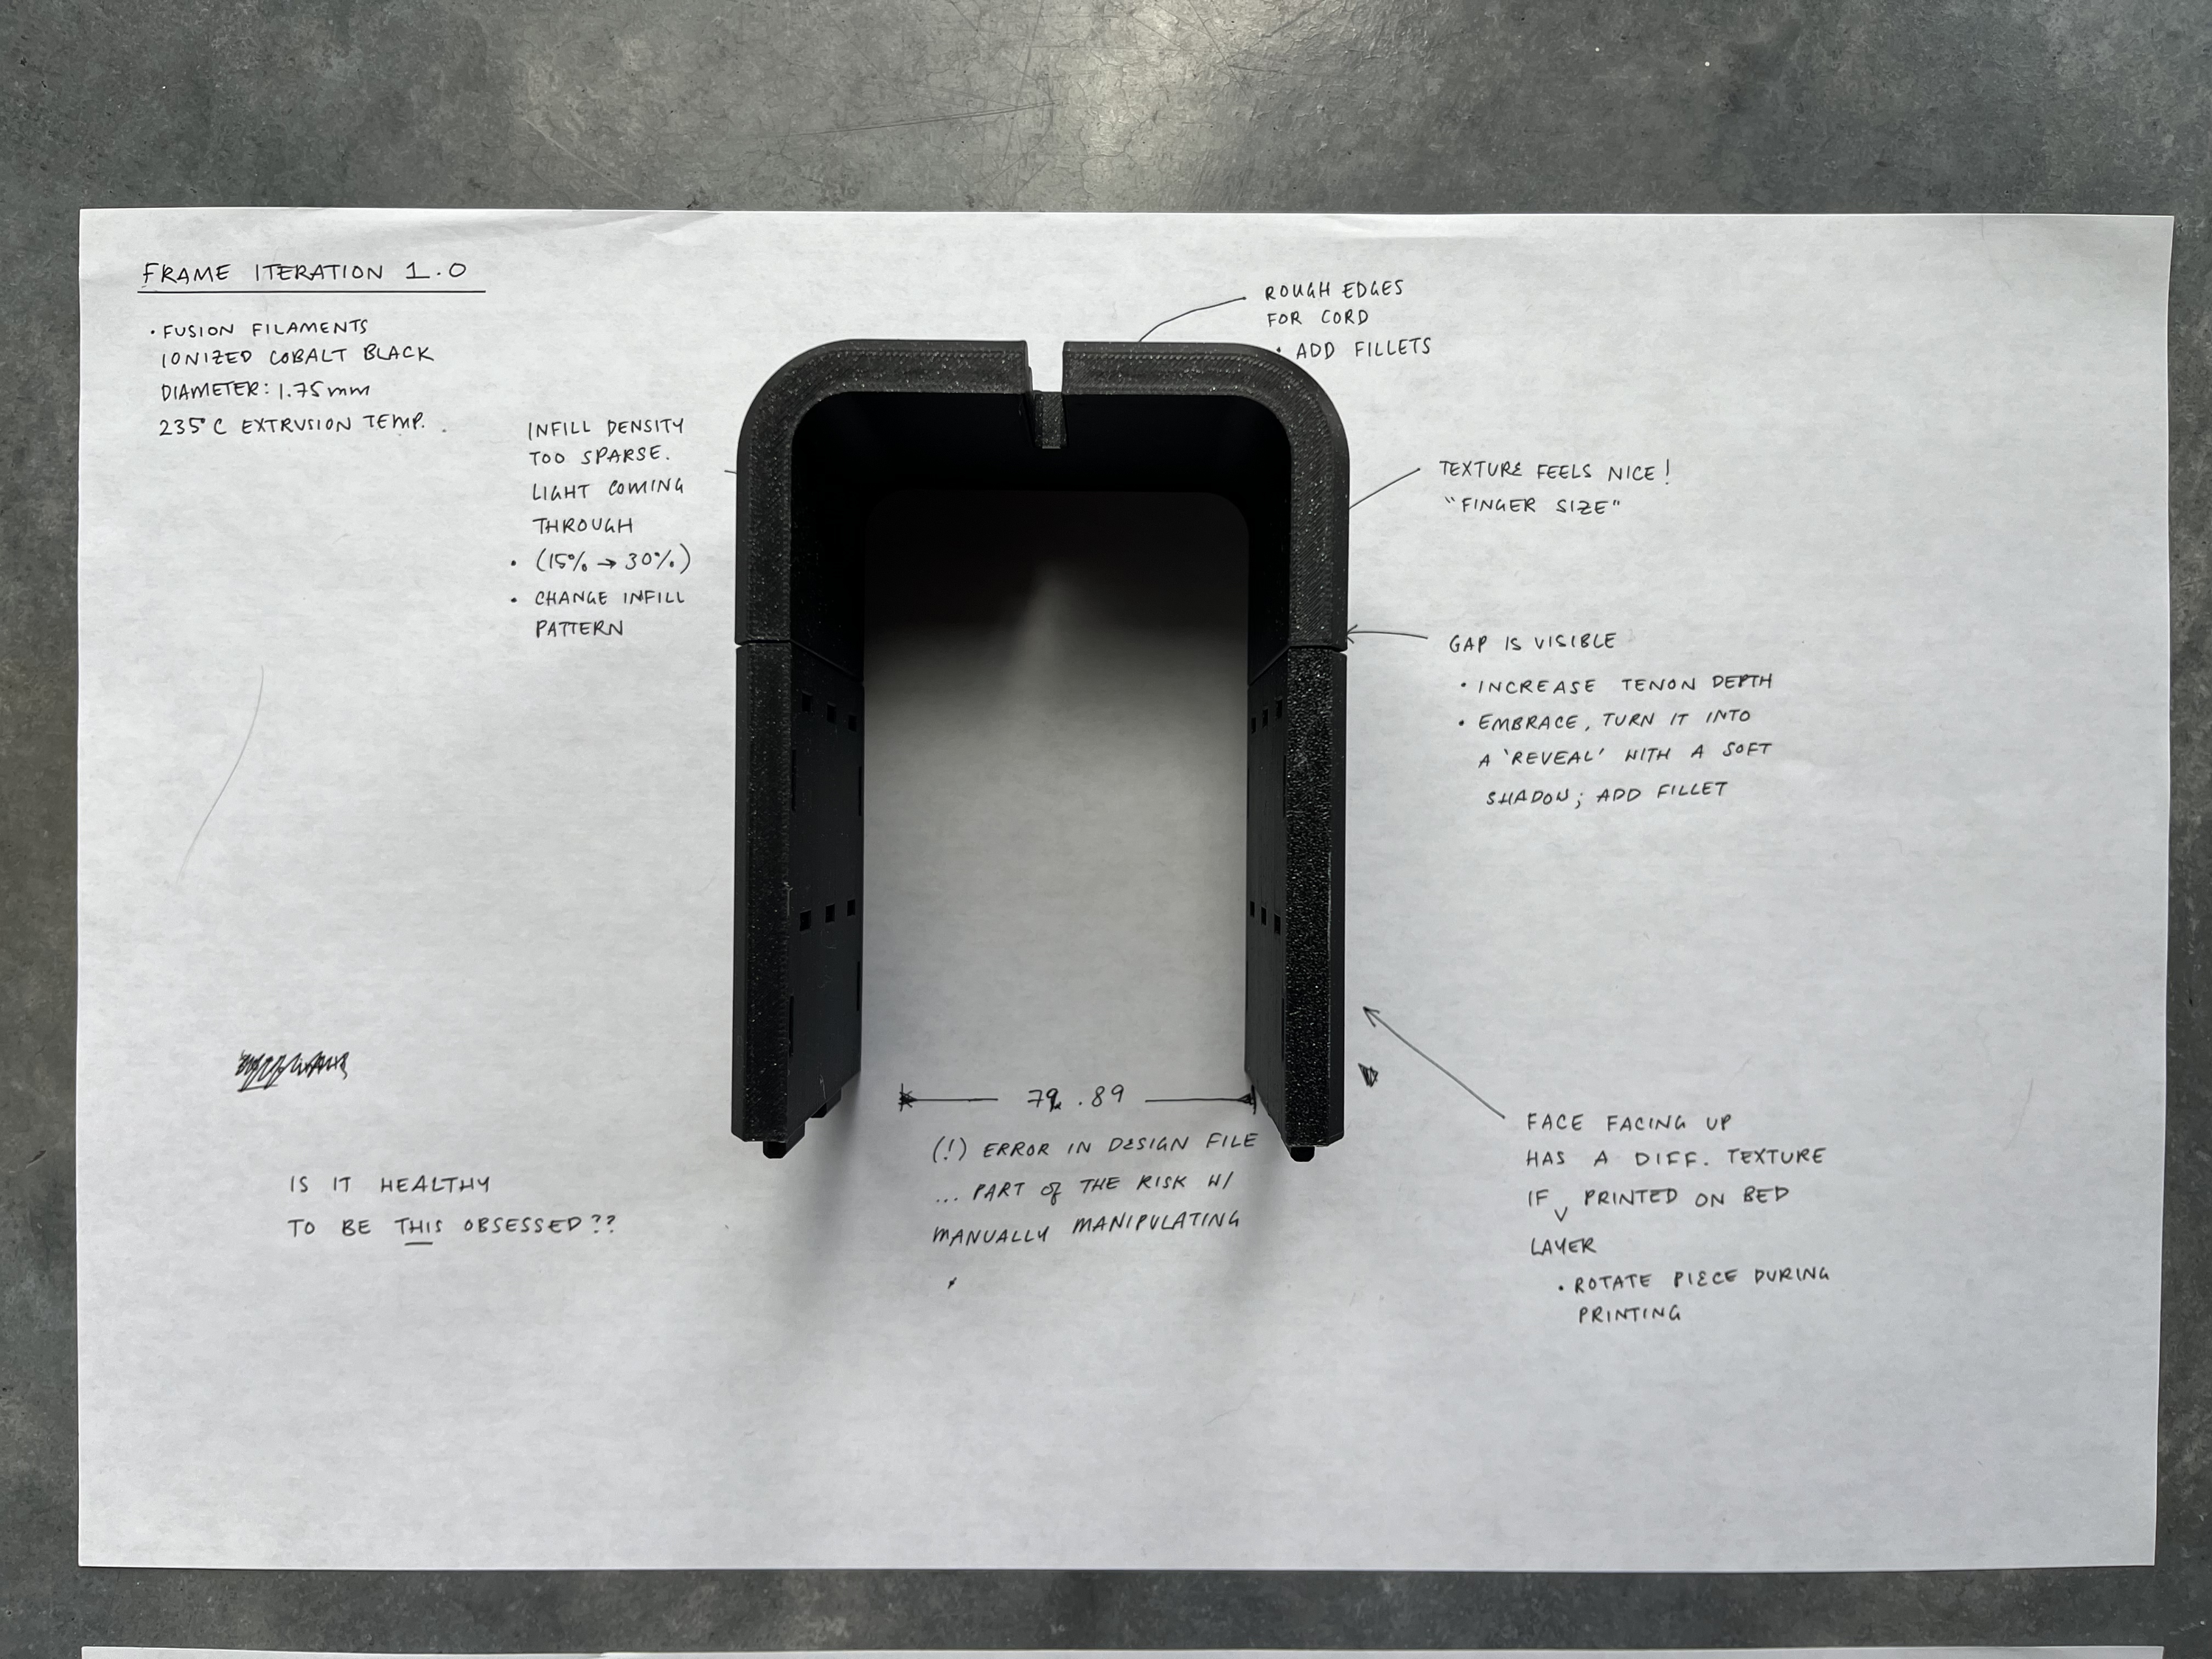 FRAME ITERATION 1.0
• FUSION FILAMENTS
IONIZED COBALT BLACK
DIAMETER: 1.75mm
235°C EXTRUSION TEMP.
INFILL DENSITY
TOO SPARSE.
LIGHT COMING
THROUGH
• (15% → 30%)
• CHANGE INFILL
PATTERN
ROUGH EDGES
FOR CORD
• ADD FILLETS
TEXTURE FEELS NICE!
"FINGER SIZE"
GAP IS VISIBLE
• INCREASE TENON DEPTH
• EMBRACE, TURN IT INTO
A 'REVEAL' WITH A SOFT
SHADOW; ADD FILLET
79.89
(!) ERROR IN DESIGN FILE
... PART OF THE RISK W/
MANUALLY MANIPULATING
IS IT HEALTHY
TO BE THIS OBSESSED??
FACE FACING UP
HAS A DIFF. TEXTURE
IF PRINTED ON BED
LAYER
• ROTATE PIECE DURING
PRINTING